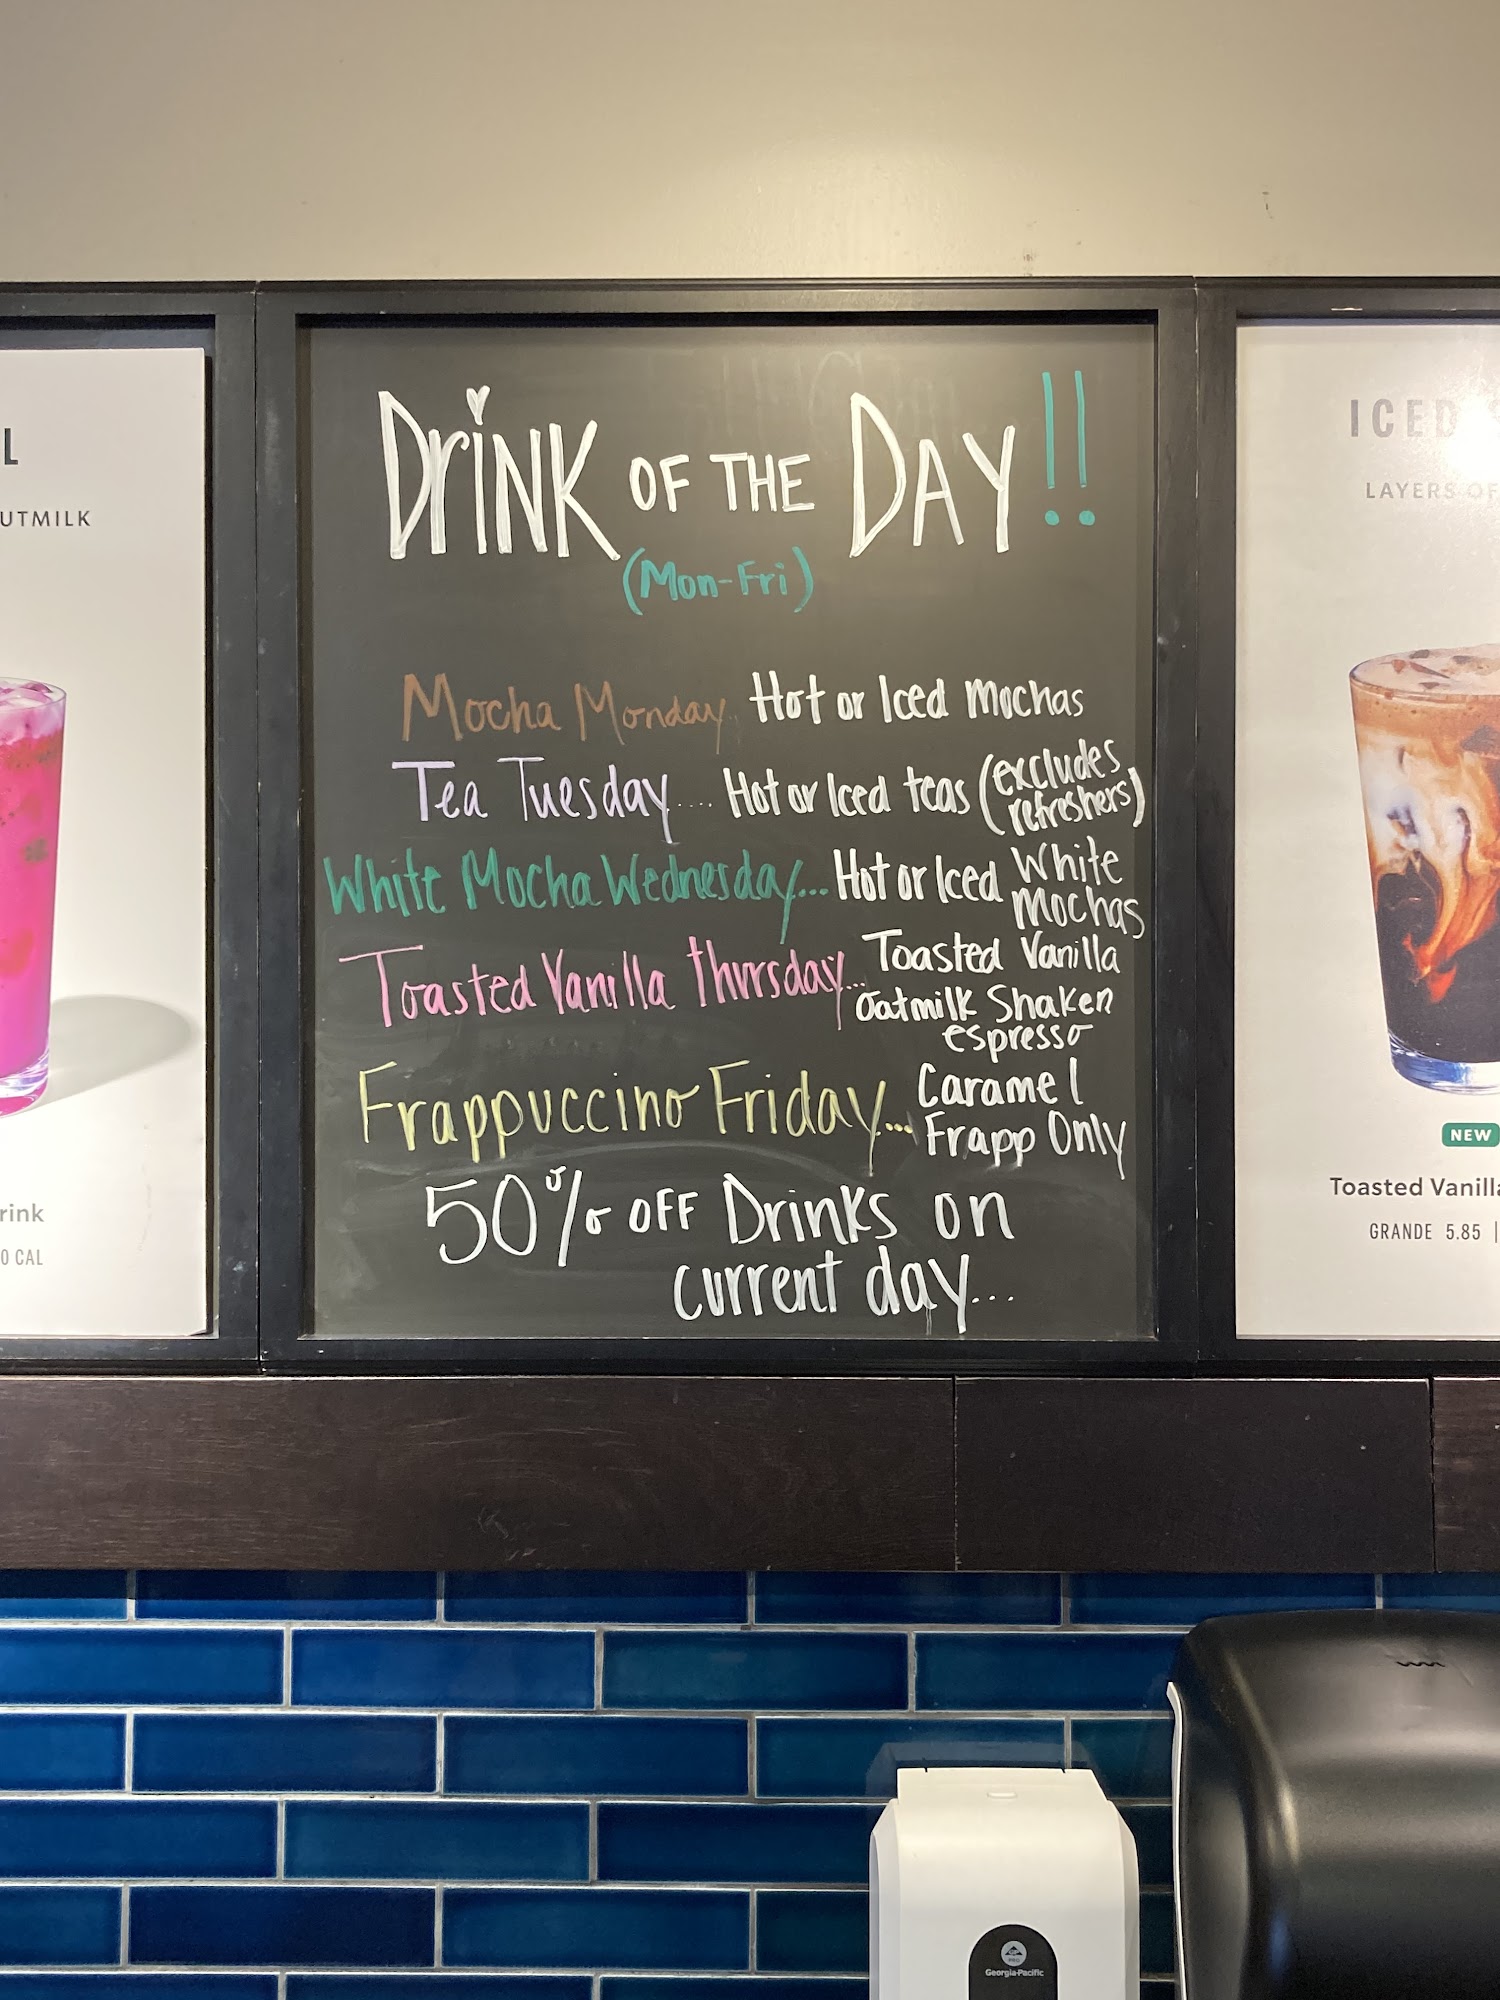 DrinK OF THE DAY!!
(Mon-Fri)
Mocha Monday Hot or Iced Mochas
Tea Tuesday.... Hot or Iced teas (excludes
refreshers)
White Mocha Wednesday... Hot or Iced White
Mochas
Toasted Vanilla Thursday... Toasted Vanilla
Oatmilk Shaken
espresso
Frappuccino Friday... Caramel
Frapp Only
50% OFF Drinks on
current day...
L
UTMILK
rink
0 CAL
ICED
LAYERS OF
NEW
Toasted Vanilla
GRANDE 5.85 |
GP
PRO
Georgia-Pacific